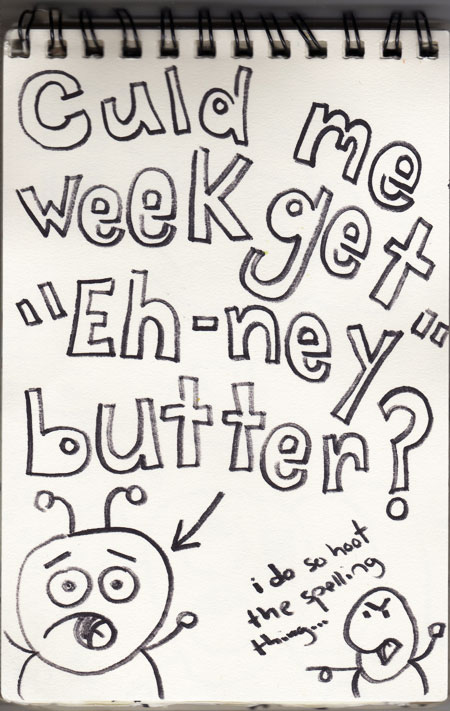 Culd me
week get
"Eh-ney"
butter?
i do so hoot
the spelling
thing...